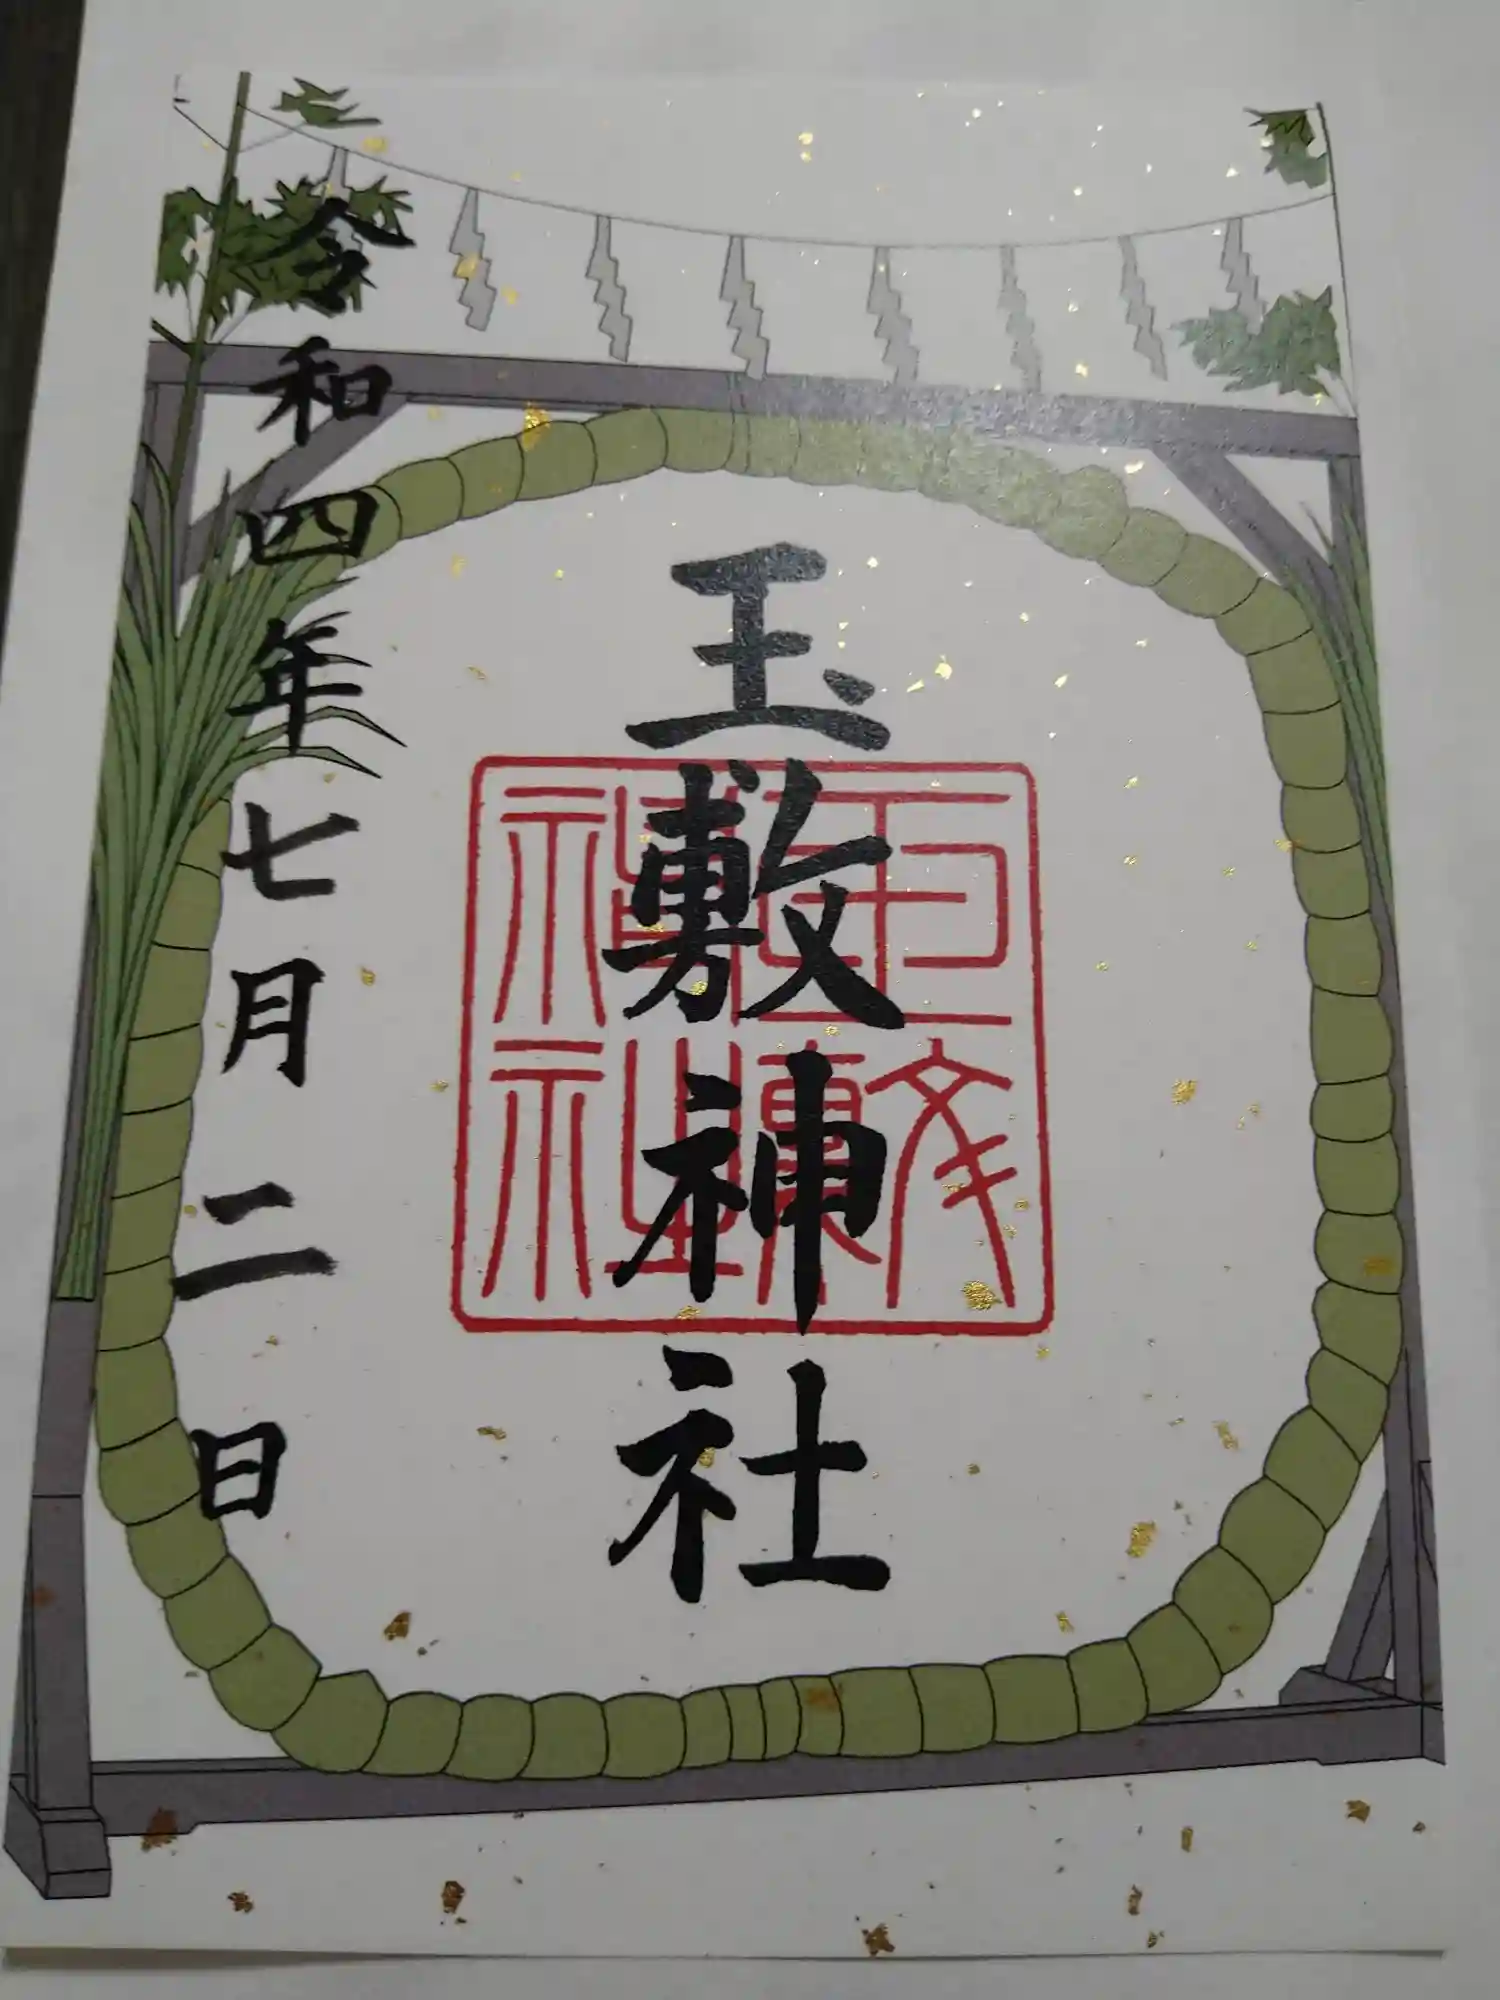 玉敷神社
玉敷神社
令和四年七月二日